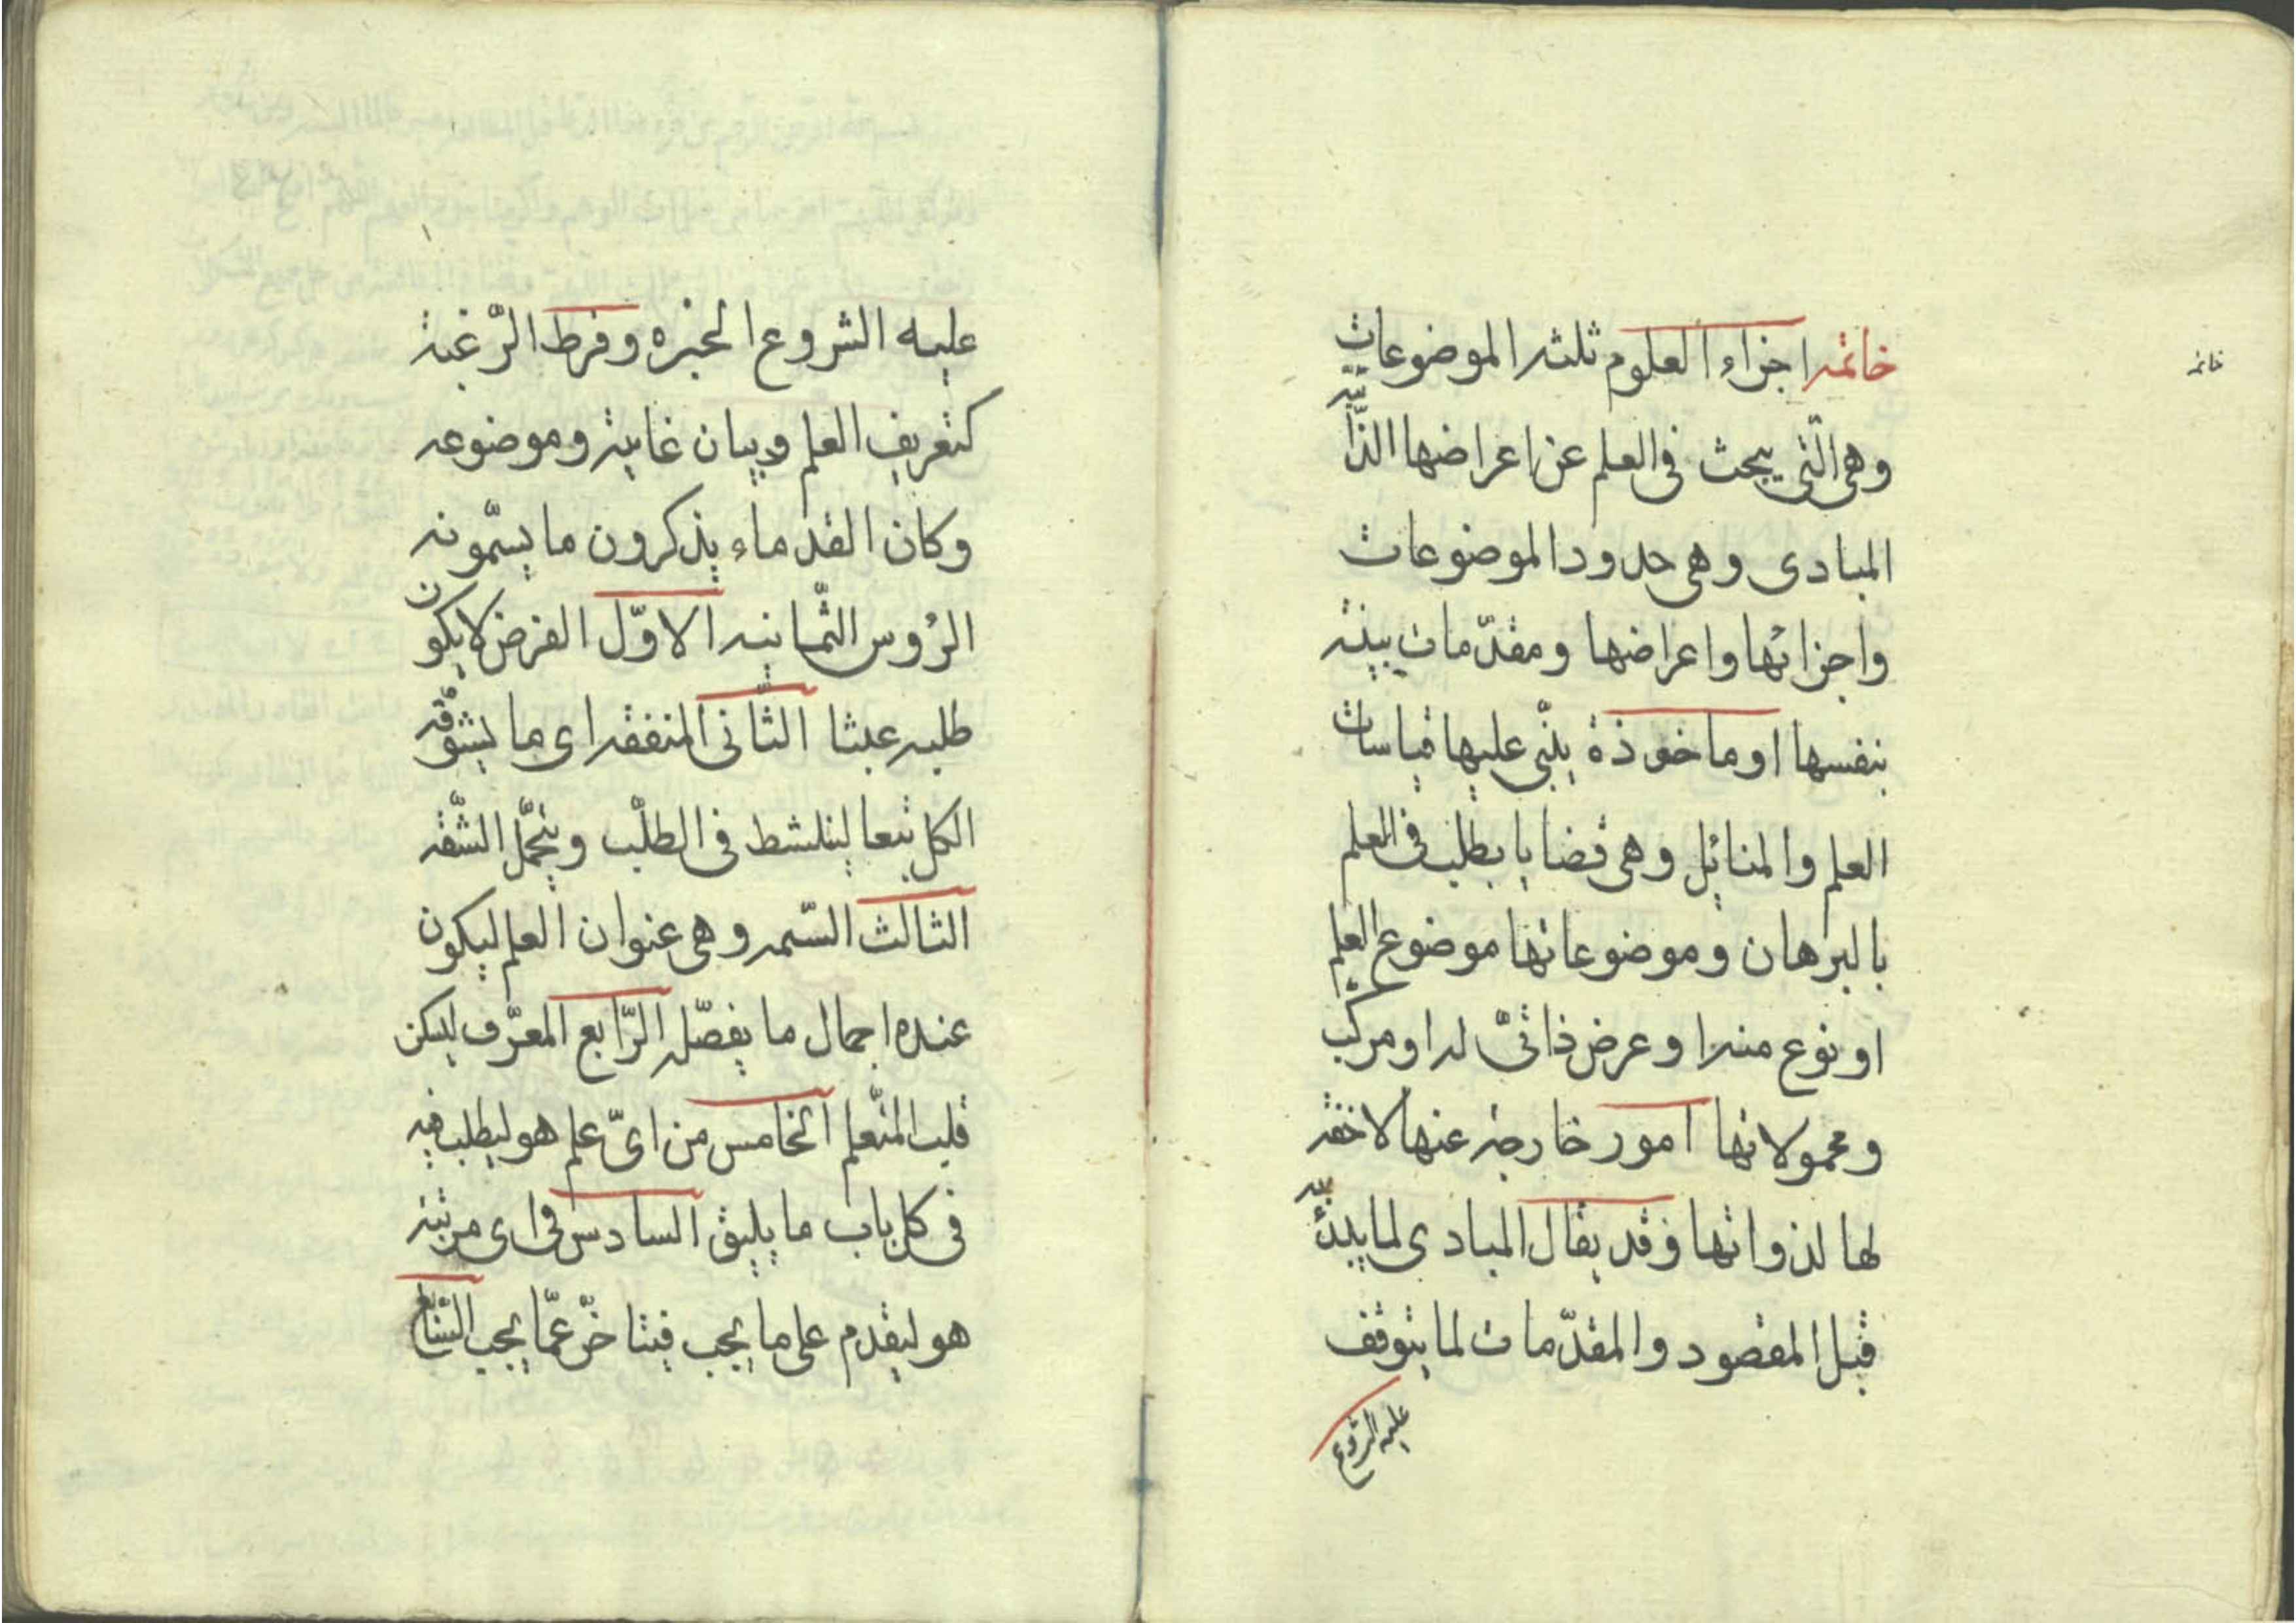 خاتمه اجزاء العلوم ثلثه الموضوعات
وهى الّتى يبحث فى العلم عن اعراضها الذّاتيّه
المبادى وهى حدود الموضوعات
واجزائها واعراضها ومقدّمات بينه
بنفسها او ماخوذة يبنى عليها قياسات
العلم والمسائل وهى قضايا يطلب فى العلم
بالبرهان وموضوعاتها موضوع العلم
او نوع منه او عرض ذاتىّ له او مركّب
ومحمولاتها امور خارجه عنها لاحقه
لها لذواتها وقد يقال المبادى لما يبدئ به
قبل المقصود والمقدّمات لما يتوقف
عليه الشروع
خاتمه
عليه الشروع الخبره وفرط الرّغبة
كتعريف العلم وبيان غايته وموضوعه
وكان القدماء يذكرون ما يسمّونه
الرؤس الثّمانيه الاوّل الغرض لايكون
طلبه عبثا الثّانى المنفقه اى ما يشوّقه
الكل تبعا لينشط فى الطلب ويتحمّل الشّقه
الثالث السّمه وهى عنوان العلم ليكون
عنده اجمال ما يفصّله الرّابع المعرّف ليكن
قلب المتّعلم الخامس من اىّ علم هو ليطلب فيه
فى كل باب ما يليق السادس فى اى مرتبه
هو ليقدم على ما يجب فيتاخّر عمّا يجب السّابع